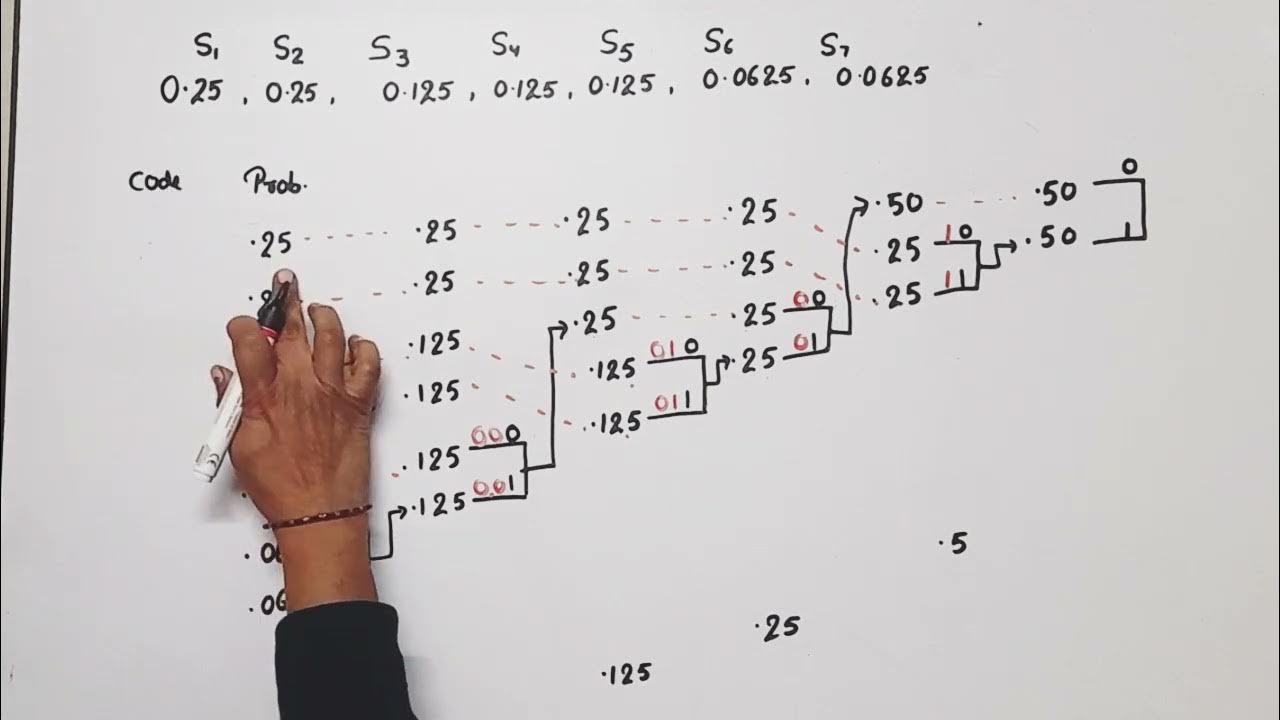 S₁ S₂ S₃ S₄ S₅ S₆ S₇
0.25 , 0.25 , 0.125 , 0.125 , 0.125 , 0.0625 , 0.0625
Code Prob.
0
.50 .50
.25 .25 .25 .25 .25 10 .50 1
.25 .25 .25 .25 11
.25 .25 00
.125 .125 010 .25 01
.125 .125 011
.125 000
.125 001
.5
.25
.125